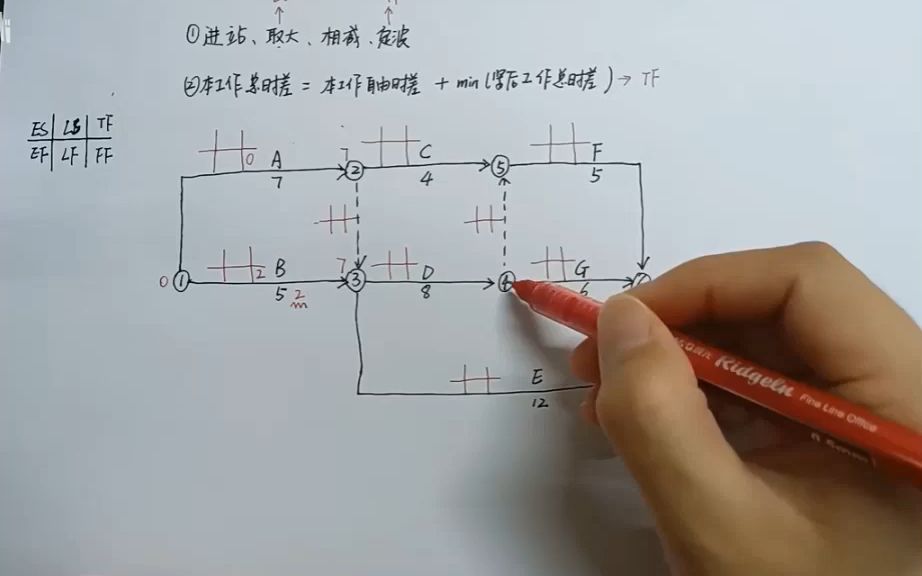 ①进站、取大、相减、定波
②本工作总时差 = 本工作自由时差 + min(紧后工作总时差) → TF
ES LS TF
EF LF FF
0 A 7
7 ② C 4
⑤ F 5
0 ① 2 B 5 2 m
7 ③ D 8
④ G 6
E 12
Ridgeln Fine Line Office